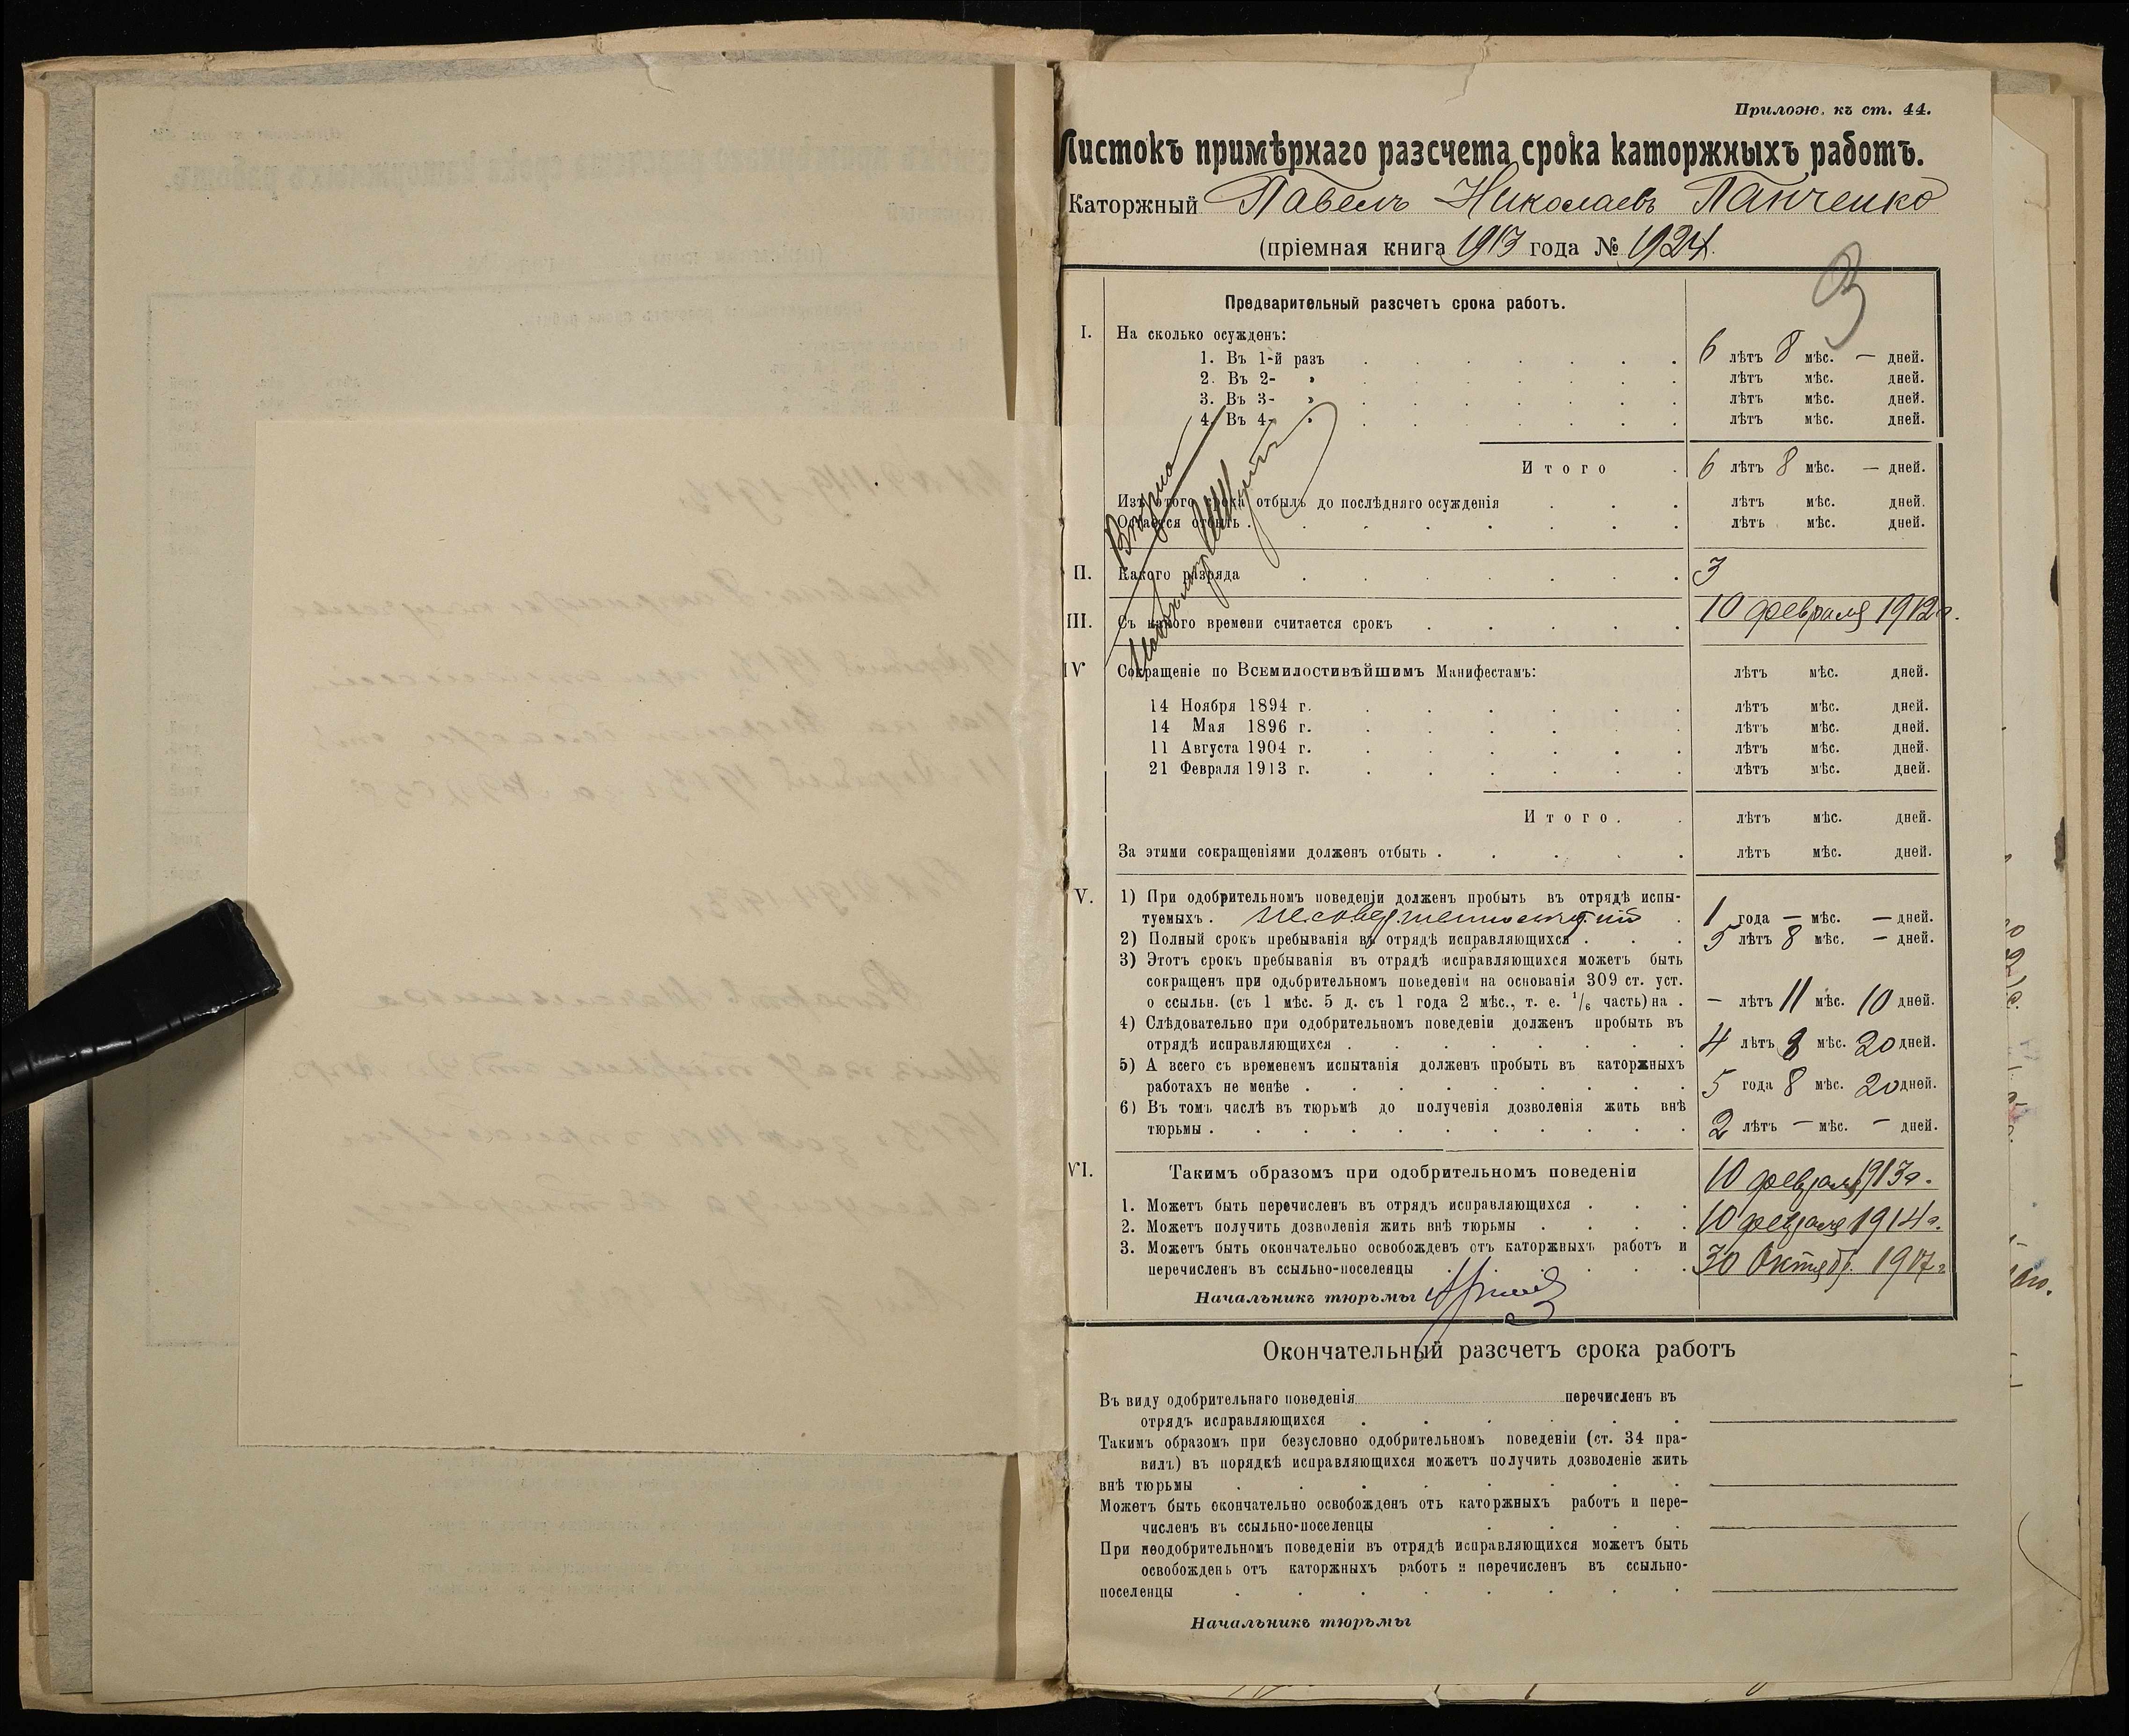 Прилож. къ ст. 44.
Листокъ примѣрнаго разсчета срока каторжныхъ работъ.
Каторжный Павелъ Николаевъ Панченко
(пріемная книга 1913 года № 1924.
3
Предварительный разсчетъ срока работъ.
I. На сколько осужденъ:
1. Въ 1-й разъ 6 лѣтъ 8 мѣс. — дней.
2. Въ 2- » лѣтъ мѣс. дней.
3. Въ 3- » лѣтъ мѣс. дней.
4. Въ 4- » лѣтъ мѣс. дней.
Итого 6 лѣтъ 8 мѣс. — дней.
Изъ этого срока отбылъ до послѣдняго осужденія лѣтъ мѣс. дней.
Остается отбыть лѣтъ мѣс. дней.
II. Какого разряда 3
III. Съ какого времени считается срокъ 10 февраля 1912 г.
IV Сокращеніе по Всемилостивѣйшимъ Манифестамъ: лѣтъ мѣс. дней.
14 Ноября 1894 г. лѣтъ мѣс. дней.
14 Мая 1896 г. лѣтъ мѣс. дней.
11 Августа 1904 г. лѣтъ мѣс. дней.
21 Февраля 1913 г. лѣтъ мѣс. дней.
Итого. лѣтъ мѣс. дней.
За этими сокращеніями долженъ отбыть лѣтъ мѣс. дней.
V. 1) При одобрительномъ поведеніи долженъ пробыть въ отрядѣ испы-
туемыхъ. 1 года — мѣс. — дней.
2) Полный срокъ пребыванія въ отрядѣ исправляющихся 5 лѣтъ 8 мѣс. — дней.
3) Этотъ срокъ пребыванія въ отрядѣ исправляющихся можетъ быть
сокращенъ при одобрительномъ поведеніи на основаніи 309 ст. уст.
о ссыльн. (съ 1 мѣс. 5 д. съ 1 года 2 мѣс., т. е. 1/6 часть) на — лѣтъ 11 мѣс. 10 дней.
4) Слѣдовательно при одобрительномъ поведеніи долженъ пробыть въ
отрядѣ исправляющихся 4 лѣтъ 8 мѣс. 20 дней.
5) А всего съ временемъ испытанія долженъ пробыть въ каторжныхъ
работахъ не менѣе 5 года 8 мѣс. 20 дней.
6) Въ томъ числѣ въ тюрьмѣ до полученія дозволенія жить внѣ
тюрьмы 2 лѣтъ — мѣс. — дней.
VI. Такимъ образомъ при одобрительномъ поведеніи
1. Можетъ быть перечисленъ въ отрядъ исправляющихся 10 февраля 1913 г.
2. Можетъ получить дозволенія жить внѣ тюрьмы 10 февраля 1914 г.
3. Можетъ быть окончательно освобожденъ отъ каторжныхъ работъ и
перечисленъ въ ссыльно-поселенцы 30 Октяб. 1917 г
Начальникъ тюрьмы
Окончательный разсчетъ срока работъ
Въ виду одобрительнаго поведенія перечисленъ въ
отрядъ исправляющихся
Такимъ образомъ при безусловно одобрительномъ поведеніи (ст. 34 пра-
вилъ) въ порядкѣ исправляющихся можетъ получить дозволеніе жить
внѣ тюрьмы
Можетъ быть окончательно освобожденъ отъ каторжныхъ работъ и пере-
численъ въ ссыльно-поселенцы
При неодобрительномъ поведеніи въ отрядѣ исправляющихся можетъ быть
освобожденъ отъ каторжныхъ работъ и перечисленъ въ ссыльно-
поселенцы
Начальникъ тюрьмы